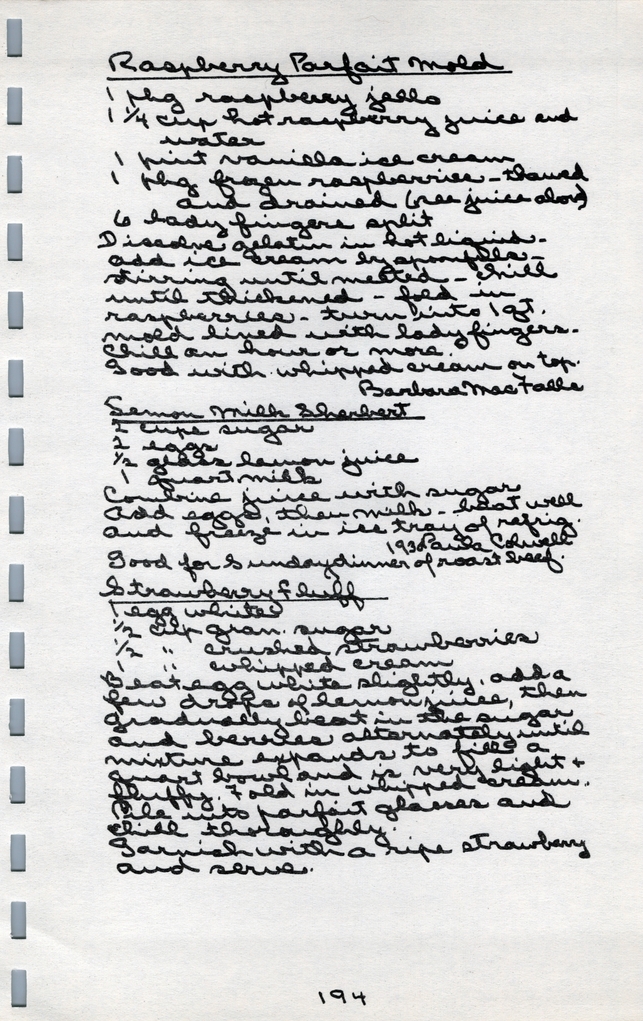 Raspberry Parfait Mold
1 pkg raspberry jello
1 1/4 cup hot raspberry juice and
water
1 pint vanilla ice cream
1 pkg frozen raspberries - thawed
and drained (use juice above)
6 lady fingers split
Dissolve gelatin in hot liquid -
add ice cream by spoonfulls -
stirring until melted - chill
until thickened - fold in
raspberries - turn into 1 qt.
mold lined with lady fingers.
Chill an hour or more.
Good with whipped cream on top.
Barbara MacFalle
Lemon Milk Sherbert
2 cups sugar
2 eggs
1/2 glass lemon juice
1 quart milk
Combine juice with sugar
add eggs, then milk - beat well
and freeze in ice tray of refrig.
1930 Paula Colwell
Good for Sunday dinner of roast beef.
Strawberry Fluff
1 egg white
1/2 cup gran. sugar
1/2 " crushed strawberries
1 " whipped cream
Beat egg white slightly, add a
few drops of lemon juice, then
gradually beat in the sugar
and berries alternately until
mixture expands to fill a
quart bowl and is very light +
fluffy. Fold in whipped cream.
Pile into parfait glasses and
chill thoroughly.
Garnish with a ripe strawberry
and serve.
194